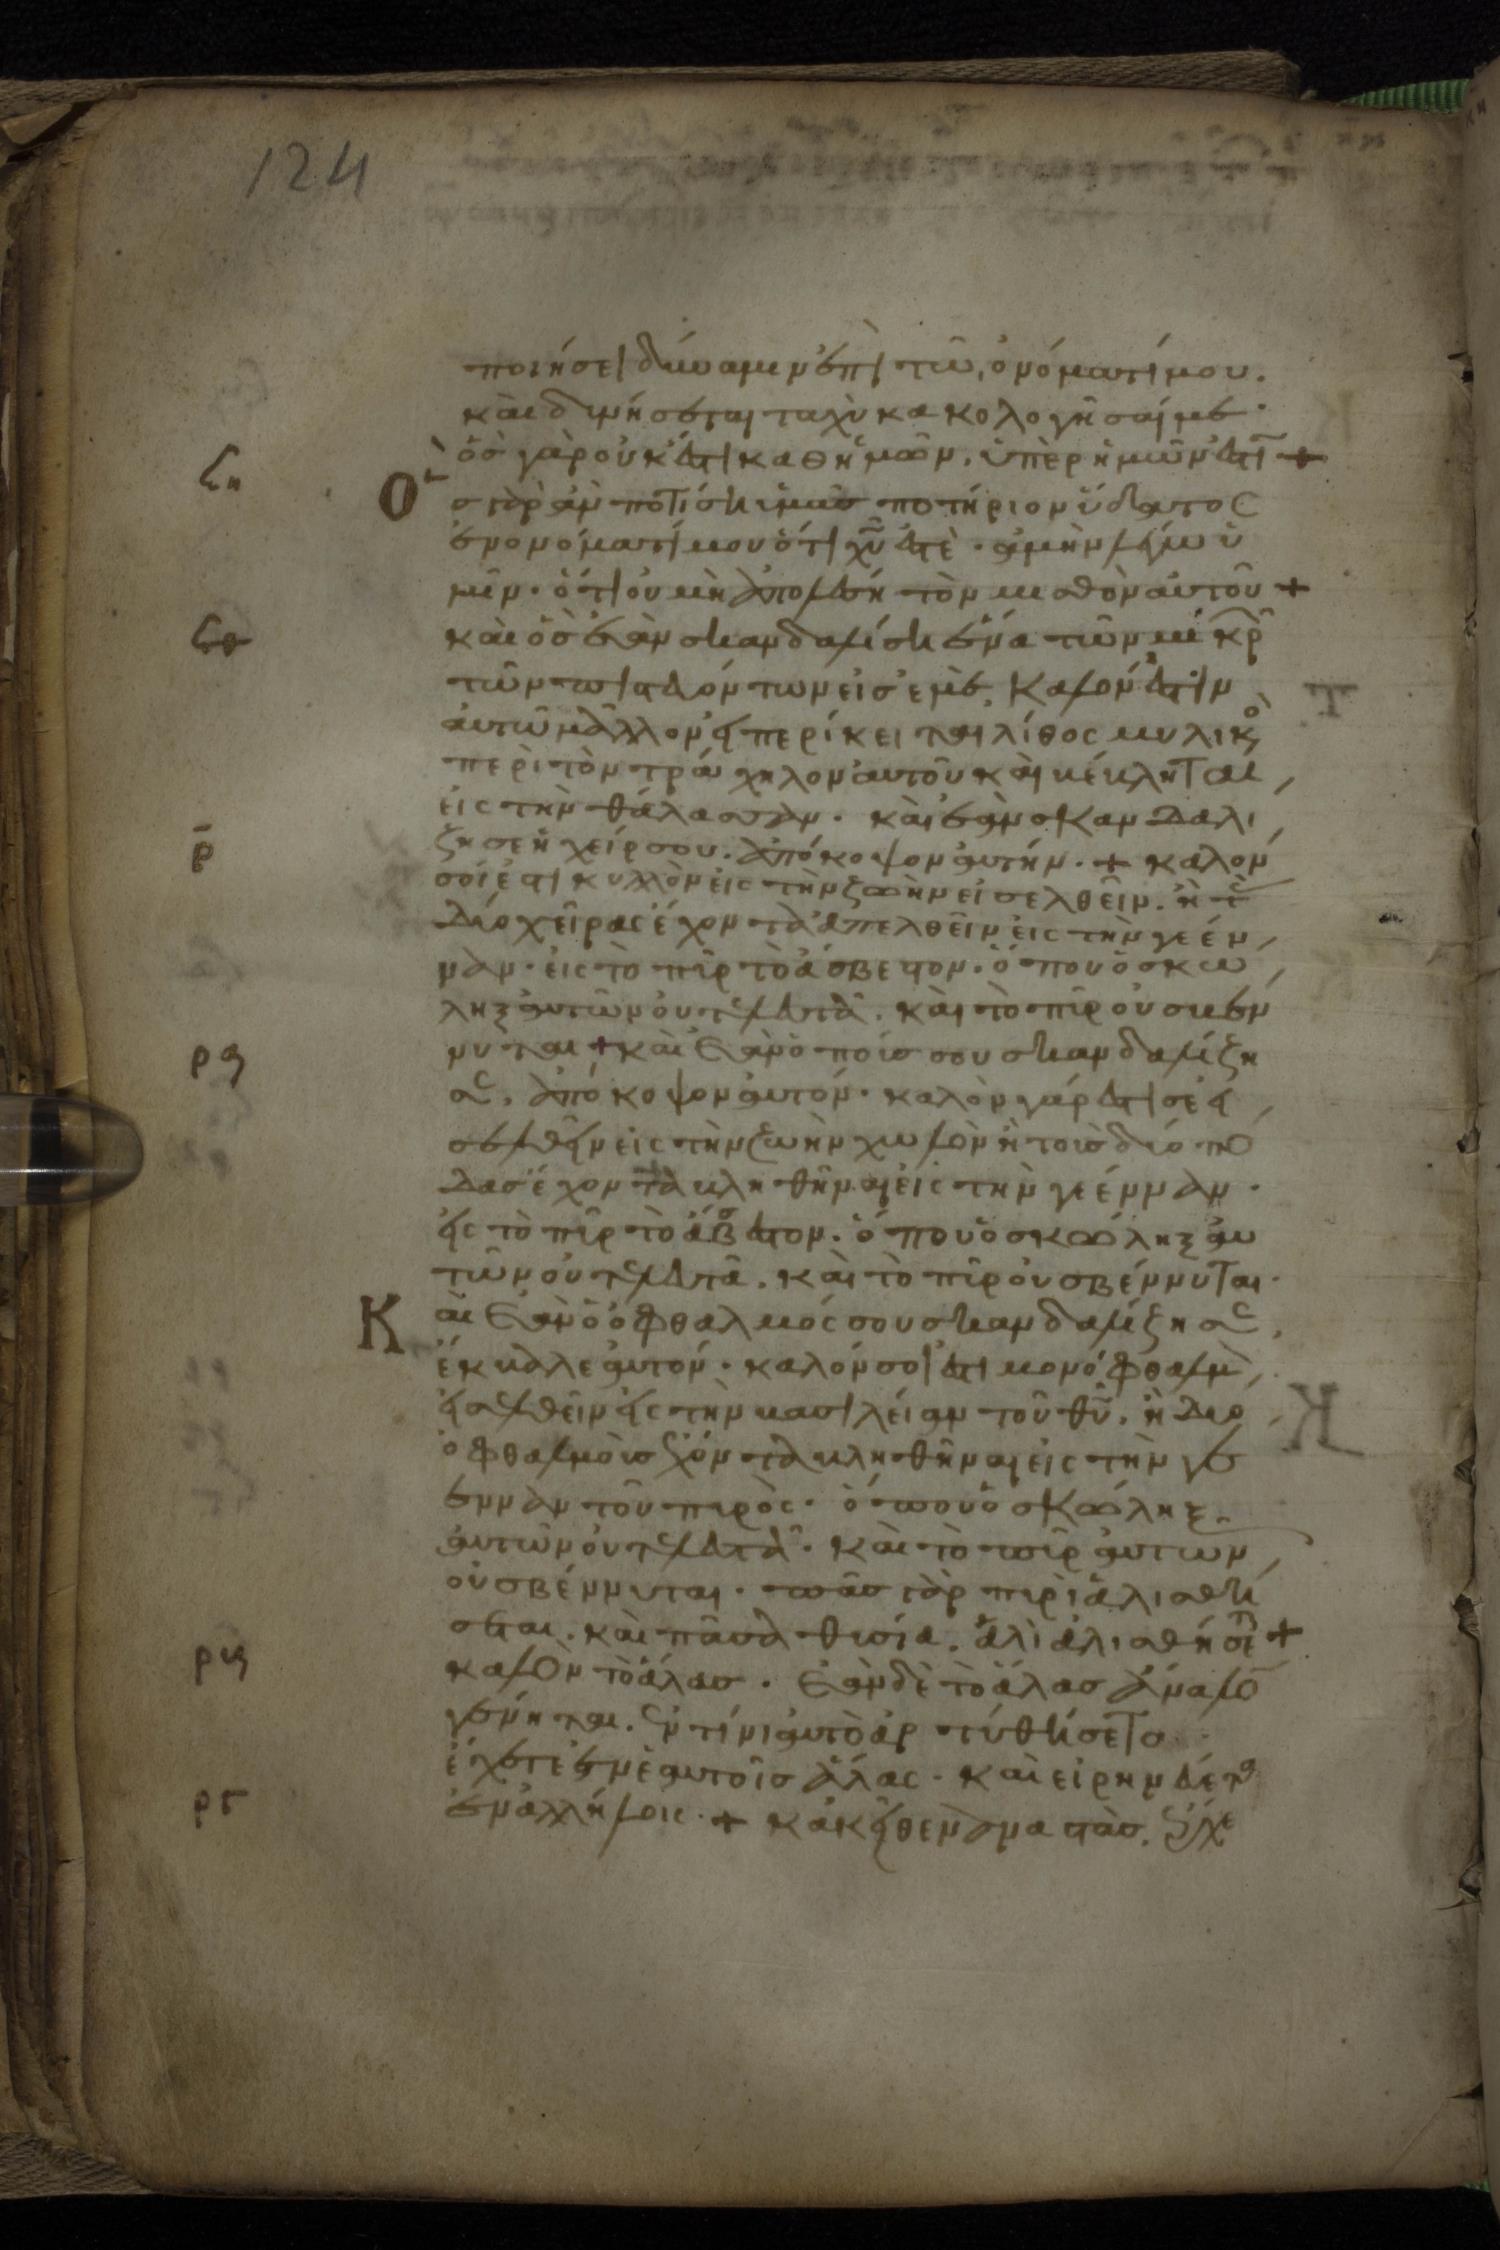 124
ποιήσει δύναμιν ἐπὶ τῶ ὀνόματί μου.
καὶ δυνήσεται ταχὺ κακολογῆσαί με·
ὃς γὰρ οὐκ ἔστι καθ ἡμῶν, ὑπὲρ ἡμῶν ἐστι +
Ὃς γὰρ ἂν ποτίση ὑμᾶς ποτήριον ὕδατος
ἐν ὀνόματί μου ὅτι χῦ ἐστὲ· ἀμὴν λέγω ὑ
μῖν· ὅτι οὐ μὴ ἀπολέση τὸν μισθὸν αὐτοῦ +
καὶ ὃς ἐὰν σκανδαλίση ἕνα τῶν μικρ
τῶν πιστευόντων εἰς ἐμέ, καλόν ἐστιν
αὐτῶ μᾶλλον εἰ περίκειται λίθος μυλικὸ
περὶ τὸν τράχηλον αὐτοῦ καὶ βέβληται
εἰς τὴν θάλασσαν· καὶ ἐὰν σκανδαλί
ζη σε ἡ χείρ σου. ἀπόκοψον αὐτήν· + καλόν
σοί ἐστι κυλλὸν εἰς τὴν ζωὴν εἰσελθεῖν. ἢ τ
δύο χεῖρας ἔχοντα ἀπελθεῖν εἰς τὴν γεέν
ναν· εἰς τὸ πῦρ τὸ ἄσβεστον. ὅπου ὁ σκώ
ληξ αὐτῶν οὐ τελευτᾶ. καὶ τὸ πῦρ οὐ σβέν
νυται + καὶ ἐὰν ὁ ποῦς σου σκανδαλίζη
σε, ἀπόκοψον αὐτόν· καλὸν γάρ ἐστί σε εἰ
σελθεῖν εἰς τὴν ζωὴν χωλὸν ἢ τοὺς δύο πό
δας ἔχοντα βληθῆναι εἰς τὴν γεένναν·
εἰς τὸ πῦρ τὸ ἄσβεστον. ὅπου ὁ σκώληξ αὐ
τῶν οὐ τελευτᾶ. καὶ τὸ πῦρ οὐ σβέννυται·
Καὶ ἐὰν ὁ ὀφθαλμός σου σκανδαλίζη σε,
ἔκβαλε αὐτόν· καλόν σοί ἐστι μονόφθαλμ
εἰσελθεῖν εἰς τὴν βασιλείαν τοῦ θῦ. ἢ δύο
ὀφθαλμοὺς ἔχοντα βληθῆναι εἰς τὴν γέ
ενναν τοῦ πυρός· ὅπου ὁ σκώληξ
αὐτῶν οὐ τελευτᾶ· καὶ τὸ πῦρ αὐτῶν
οὐ σβέννυται· πᾶς γὰρ πυρὶ ἁλισθή
σεται. καὶ πᾶσα θυσία. ἁλὶ ἁλισθήσε +
καλὸν τὸ ἅλας. ἐὰν δὲ τὸ ἅλας ἄναλο
γένηται. ἐν τίνι αὐτὸ ἀρτύθήσετα
ἔχετε ἐν ἑαυτοῖς ἅλας· καὶ εἰρηνεύετε
ἐν ἀλλήλοις· + κἀκεῖθεν ἀναστὰς. ἔρχε
ϟη
ϟθ
ρ
ρα
ρβ
ργ